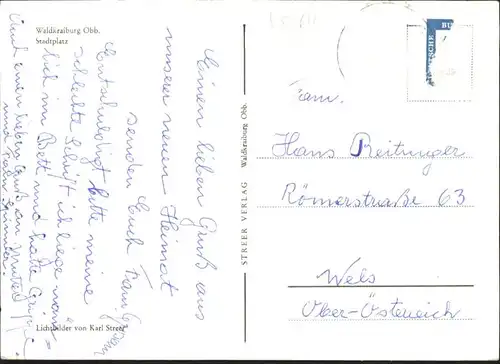 Waldkraiburg Obb.
Stadtplatz
Einen lieben Gruß aus
unserer neuen Heimat
senden Euch Fam.
Entschuldigt bitte meine
schlechte Schrift ich liege näm-
lich im Bett und hatte
Und einen lieben Gruß an
und
Lichtbilder von Karl Streer
STREER VERLAG Waldkraiburg Obb.
Fam.
Hans Reitinger
Römerstraße 63
Wels
Ober-Österreich